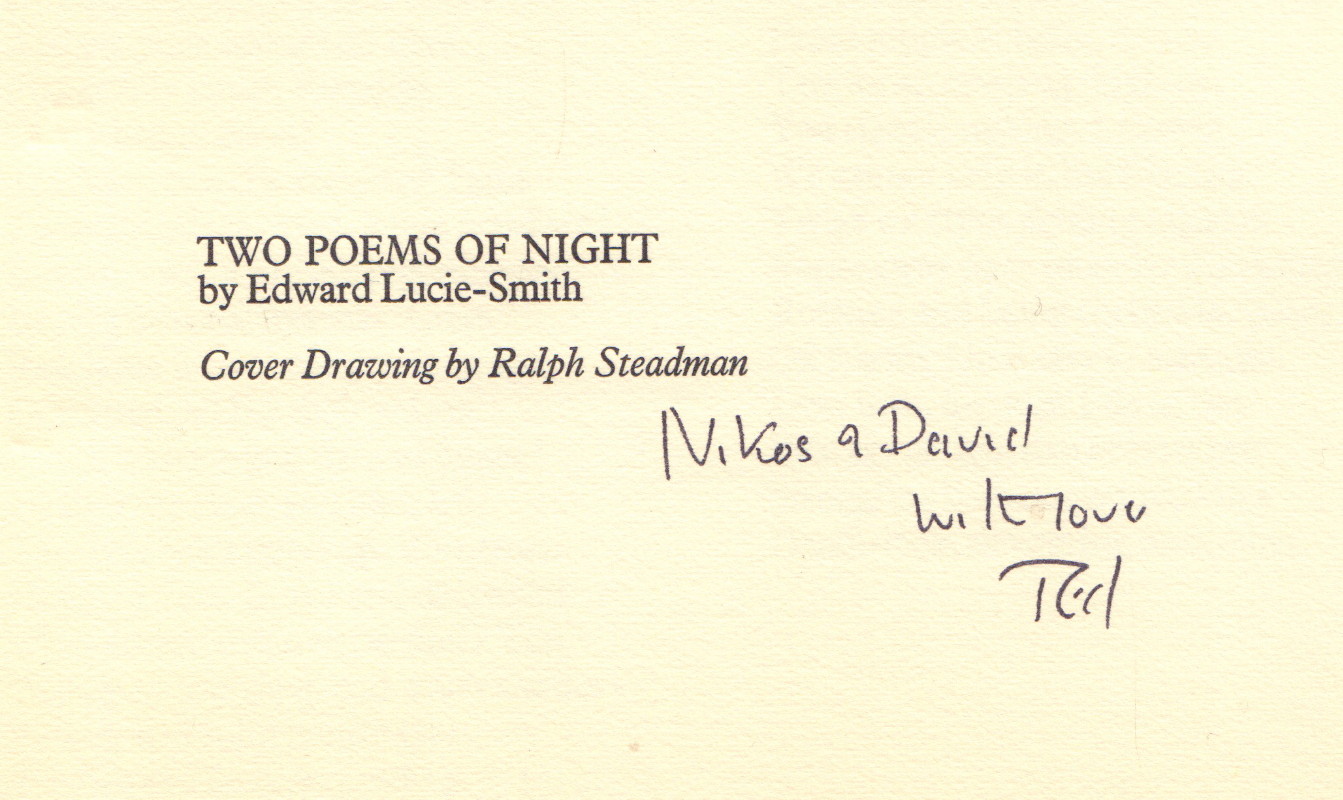 TWO POEMS OF NIGHT
by Edward Lucie-Smith
Cover Drawing by Ralph Steadman
Nikos & David
with love
Ted